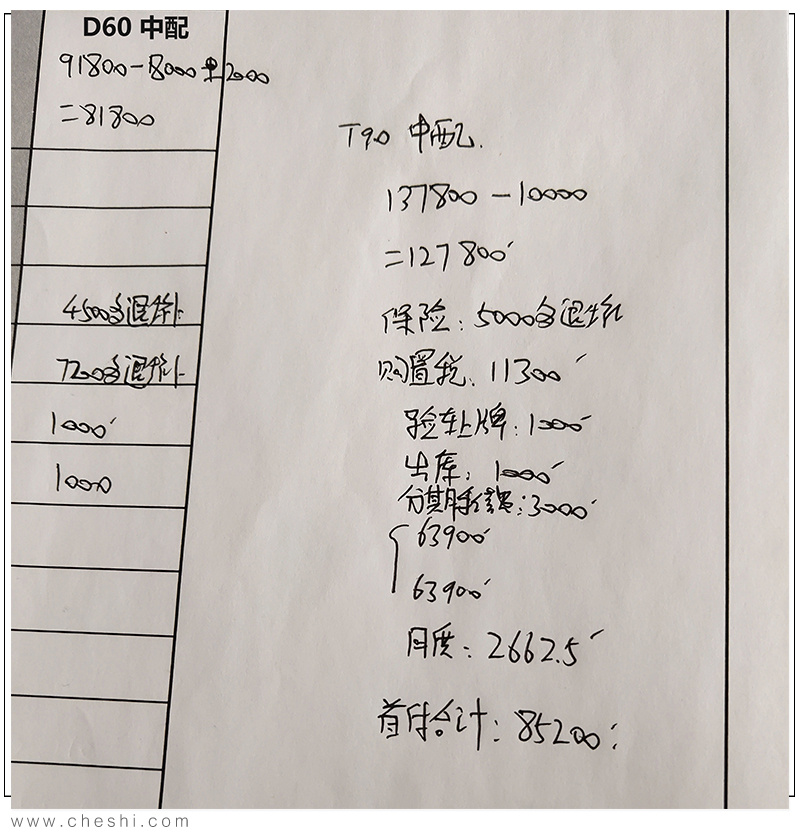 D60 中配
91800-18000±2000
=81800
4500多退少补
7200多退少补
1000
1000
T90 中配.
137800-10000
=127800
保险:5000多退少补
购置税:11300
验车上牌:1000
出库:1000
分期手续费:3000
63900
63900
月度:2662.5
首付合计:85200
www.cheshi.com